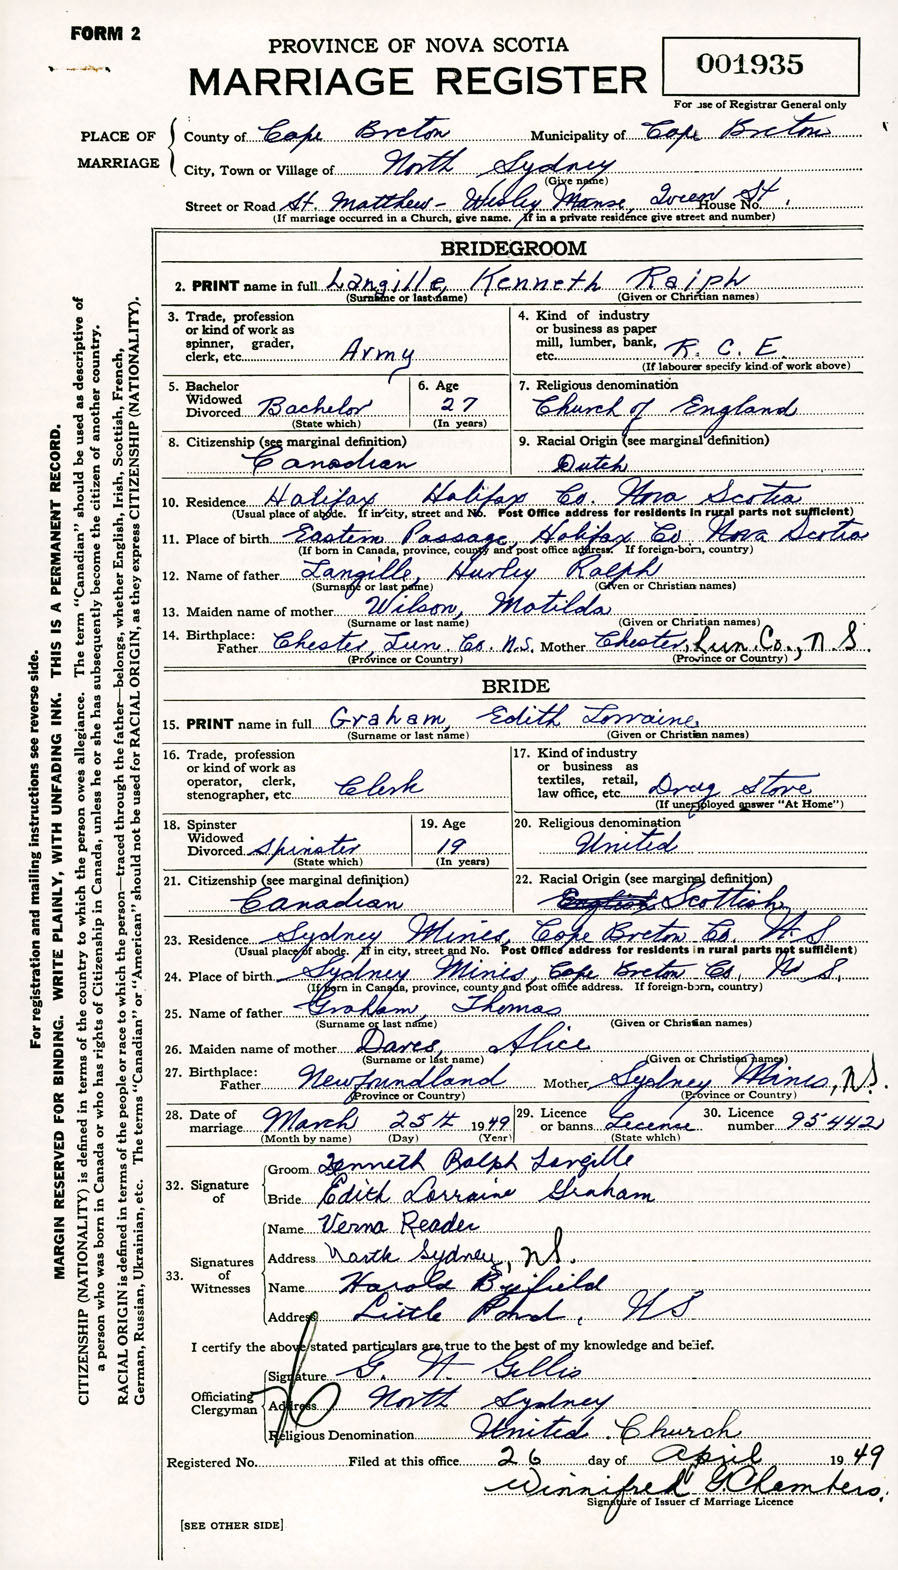 FORM 2
PROVINCE OF NOVA SCOTIA
MARRIAGE REGISTER
001935
For use of Registrar General only
PLACE OF MARRIAGE
County of Cape Breton Municipality of Cape Breton
City, Town or Village of North Sydney
(Give name)
Street or Road St. Matthew-Wesley Manse, Queen St House No.
(If marriage occurred in a Church, give name. If in a private residence give street and number)
BRIDEGROOM
2. PRINT name in full Langille, Kenneth Ralph
(Surname or last name) (Given or Christian names)
3. Trade, profession or kind of work as spinner, grader, clerk, etc. Army
4. Kind of industry or business as paper mill, lumber, bank, etc. R. C. E.
(If labourer specify kind of work above)
5. Bachelor Widowed Divorced Bachelor
(State which)
6. Age 27
(In years)
7. Religious denomination Church of England
8. Citizenship (see marginal definition) Canadian
9. Racial Origin (see marginal definition) Dutch
10. Residence Halifax Halifax Co. Nova Scotia
(Usual place of abode. If in city, street and No. Post Office address for residents in rural parts not sufficient)
11. Place of birth Eastern Passage, Halifax Co Nova Scotia
(If born in Canada, province, county and post office address. If foreign-born, country)
12. Name of father Langille, Hurley Ralph
(Surname or last name) (Given or Christian names)
13. Maiden name of mother Wilson, Matilda
(Surname or last name) (Given or Christian names)
14. Birthplace: Father Chester, Lun. Co. N.S. Mother Chester, Lun. Co., N.S.
(Province or Country) (Province or Country)
BRIDE
15. PRINT name in full Graham, Edith Lorraine
(Surname or last name) (Given or Christian names)
16. Trade, profession or kind of work as operator, clerk, stenographer, etc. Clerk
17. Kind of industry or business as textiles, retail, law office, etc. Drug Store
(If unemployed answer "At Home")
18. Spinster Widowed Divorced Spinster
(State which)
19. Age 19
(In years)
20. Religious denomination United
21. Citizenship (see marginal definition) Canadian
22. Racial Origin (see marginal definition) English Scottish
23. Residence Sydney Mines, Cape Breton Co, N.S
(Usual place of abode. If in city, street and No. Post Office address for residents in rural parts not sufficient)
24. Place of birth Sydney Mines, Cape Breton Co, N.S.
(If born in Canada, province, county and post office address. If foreign-born, country)
25. Name of father Graham, Thomas
(Surname or last name) (Given or Christian names)
26. Maiden name of mother Alice
(Surname or last name) (Given or Christian names)
27. Birthplace: Father Newfoundland Mother Sydney Mines, N.S.
(Province or Country) (Province or Country)
28. Date of marriage March 25th 1949
(Month by name) (Day) (Year)
29. Licence or banns License
(State which)
30. Licence number 95442
32. Signature of
Groom Kenneth Ralph Langille
Bride Edith Lorraine Graham
33. Signatures of Witnesses
Name Verna Reader
Address North Sydney, N.S.
Name Harold Byifield
Address Little Pond, N S
I certify the above stated particulars are true to the best of my knowledge and belief.
Officiating Clergyman
Signature G. N. Gillis
Address North Sydney
Religious Denomination United Church
Registered No. Filed at this office 26 day of April 1949
Winnifred G. Chambers.
Signature of Issuer of Marriage Licence
[SEE OTHER SIDE]
For registration and mailing instructions see reverse side.
MARGIN RESERVED FOR BINDING. WRITE PLAINLY, WITH UNFADING INK. THIS IS A PERMANENT RECORD.
CITIZENSHIP (NATIONALITY) is defined in terms of the country to which the person owes allegiance. The term "Canadian" should be used as descriptive of
a person who was born in Canada or who has rights of Citizenship in Canada, unless he or she has subsequently become the citizen of another country.
RACIAL ORIGIN is defined in terms of the people or race to which the person—traced through the father—belongs, whether English, Irish, Scottish, French,
German, Russian, Ukrainian, etc. The terms "Canadian" or "American" should not be used for RACIAL ORIGIN, as they express CITIZENSHIP (NATIONALITY).